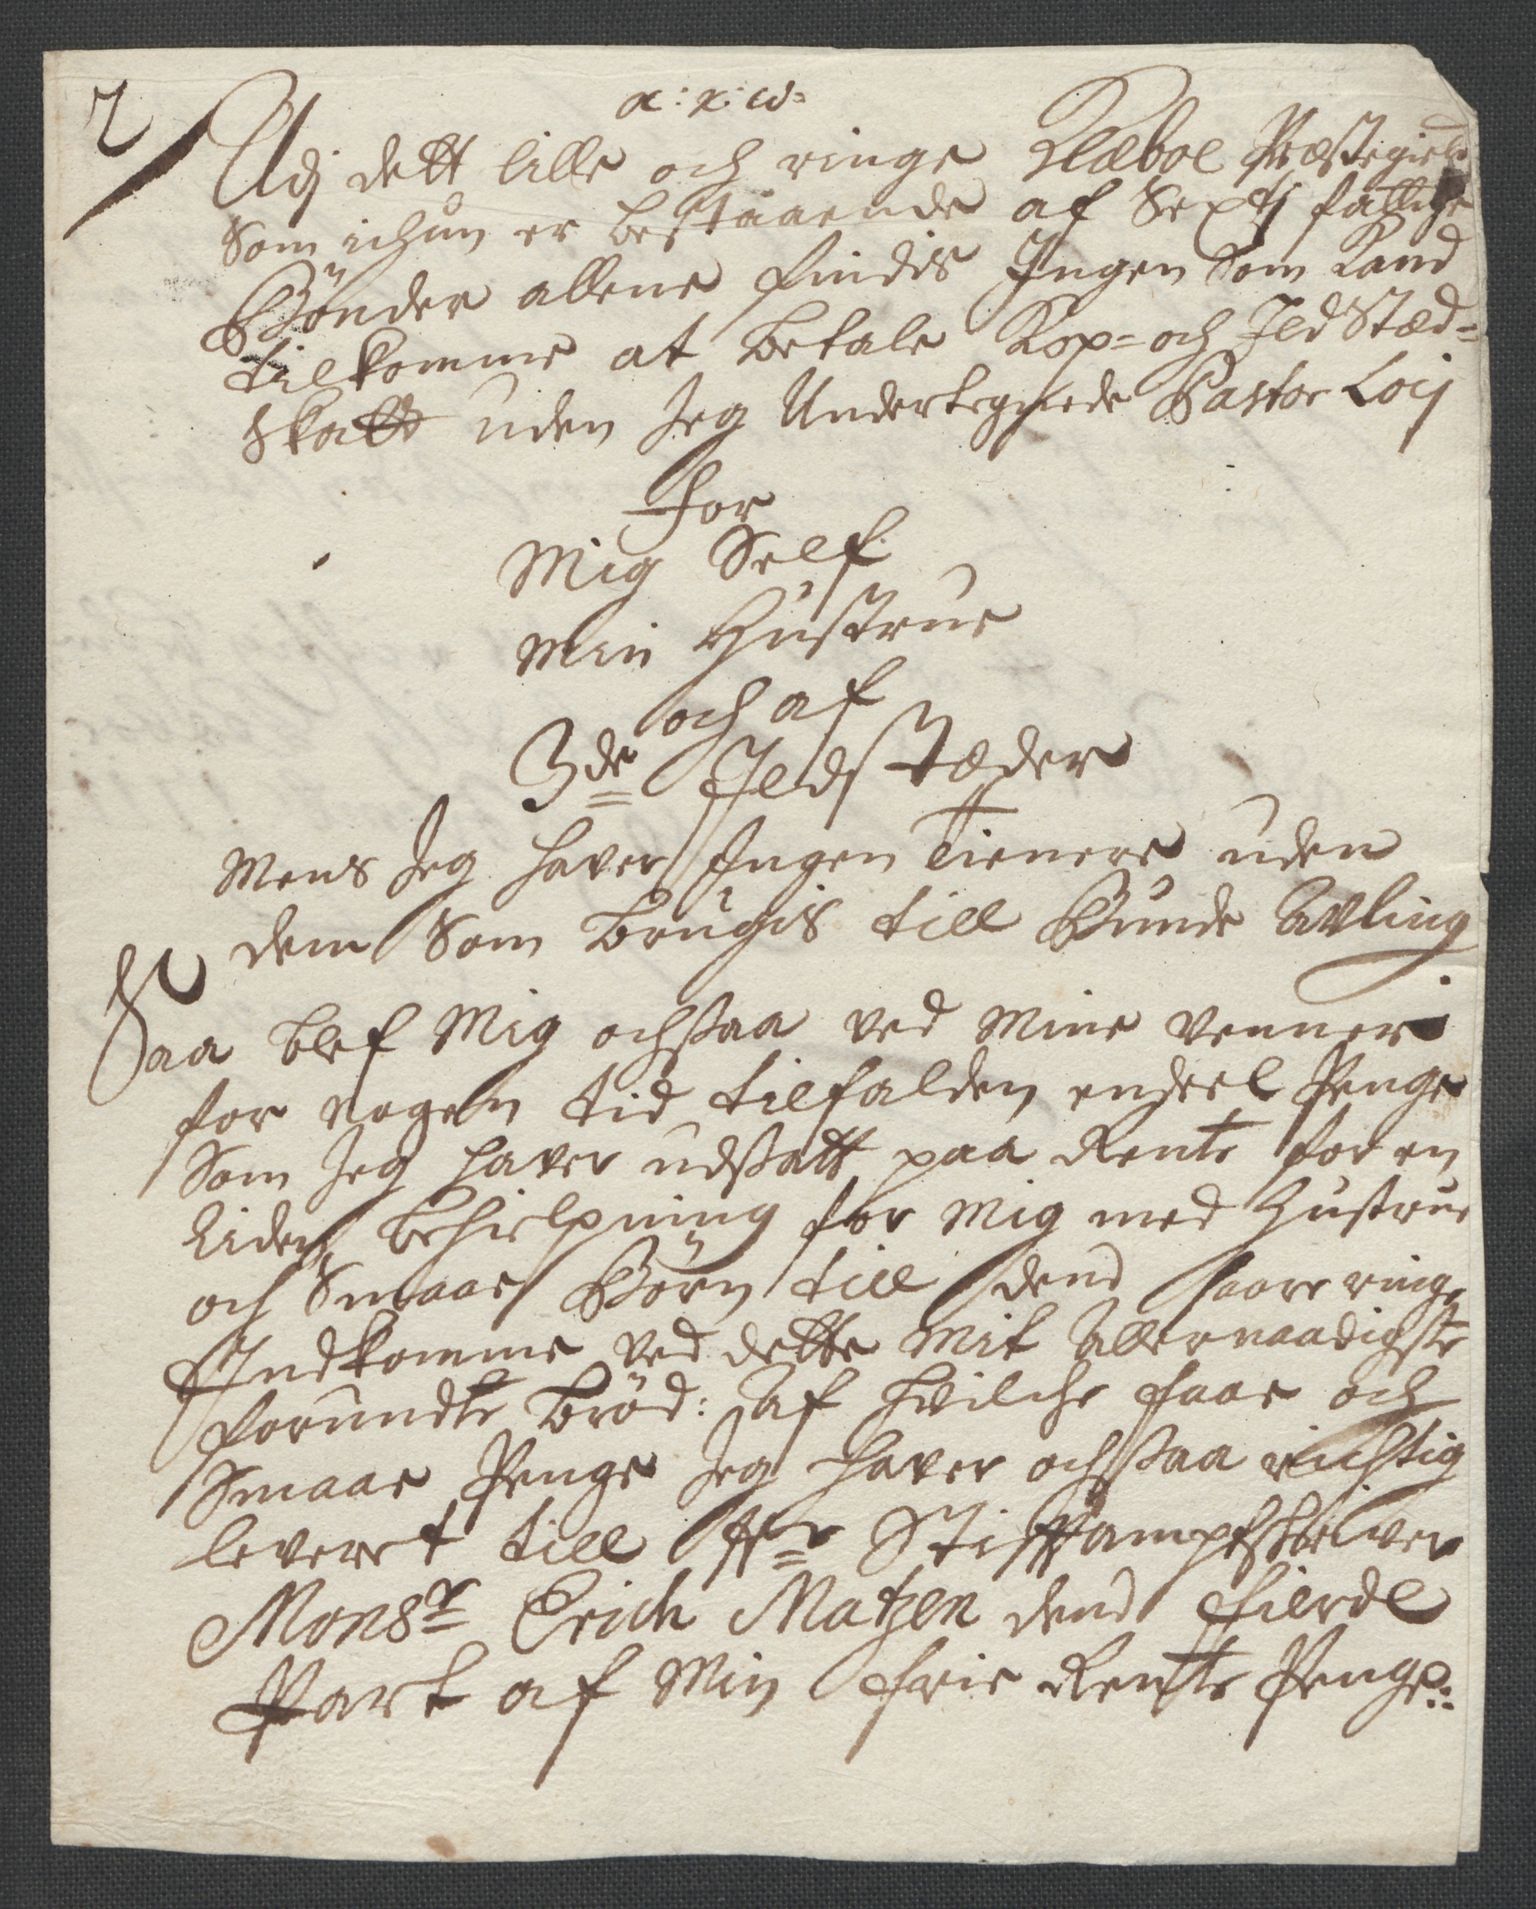 2
α: χ: ω:
Udj dett lille och ringe Klæboe Præstegield
Som ichun er bestaaende af Sexti fattige
Bönder allene findis Ingen Som Kand
tilkomme at betale Kop= och Ild Stæd=
Skatt uden Jeg Undertegnede Pastor Locj
For
Mig Self
Min Hustrue
och af
3de Ildstæder
Mens Jeg haver Ingen Tienere uden
dem Som brugis till Bunde Avling
Saa blef Mig ochsaa ved Mine Venner
for nogen tid tilfalden endeel Penge
Som Jeg haver udsatt paa Rente for en
Liden behielpning for Mig med Hustrue
och Smaae Börn till dend saare ringe
Indkomme ved dette Mit Allernaadigste
forundte bröd: Af hvilche faae och
Smaae Penge Jeg haver ochsaa richtig
leveret till Hr Stiftampschriver
Monsr Erich Matzen dend Fierde
Part af Min Frie Rente Penge: